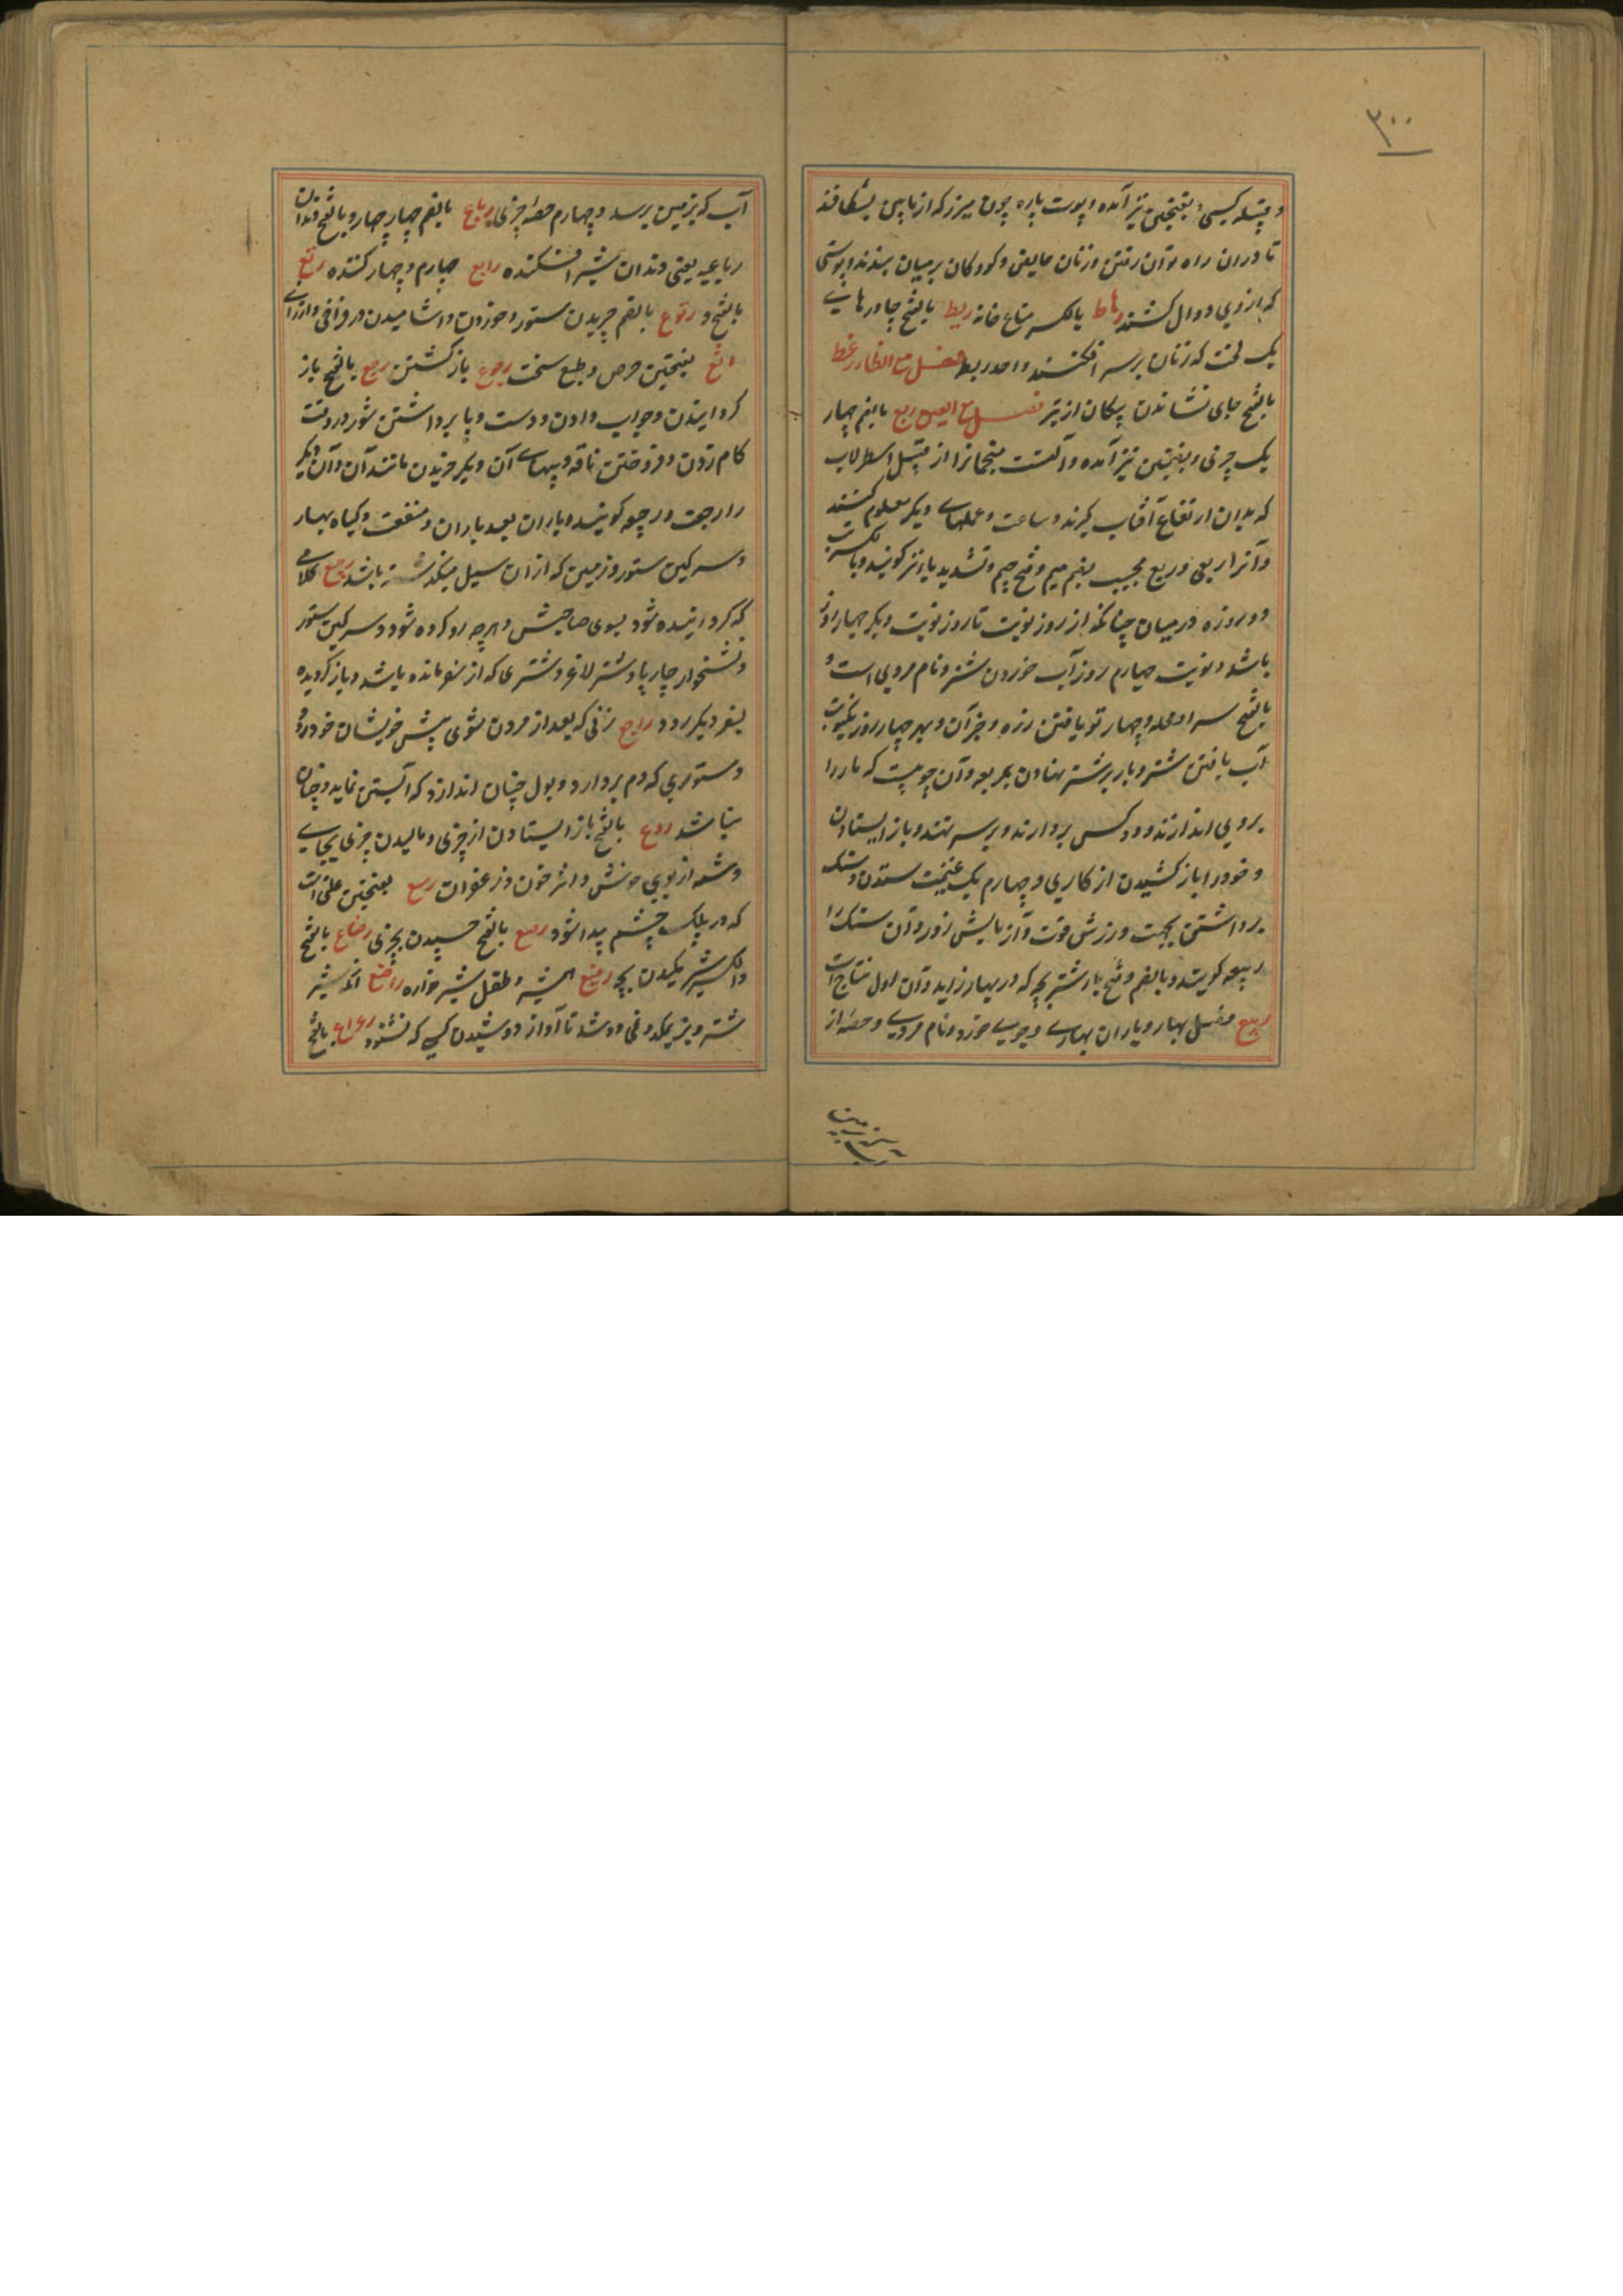 ۳۰۰
و قبیله کسی و بفتحتین نیز آمده و پوست پاره چون میزر که از پایین بشکافند
تا دران راه توان رفتن و زنان حایض و کودکان بر میان بندند و پوستی
که ازوی دوال کشند رهاط بالکسر متاع خانه ریط بالفتح چادرهای
یک لخت که زنان بر سر افکنند واحد ریطه فصل مع الظا رعظ
بالفتح جای نشاندن پیکان از تیر فصل مع العین ربع بالضم چهار
یک چیزی و بضمتین نیز آمده و آلتست منجمانرا از قبیل اسطرلاب
که بدان ارتفاع آفتاب گیرند و ساعت و عملهای دیگر معلوم کنند
و آنرا ربعی و ربع مجیب بضم میم و فتح جیم و تشدید یا نیز گویند و بالکسر تب
دو روزه در میان چنانکه از روز نوبت تا روز نوبت دیگر چهار روز
باشد و نوبت چهارم روز آب خوردن شتر و نام مردی است و
بالفتح سرا و محله و چهار تو بافتن زه و جز آن و بهر چهار روز یک نوبت
آب یافتن شتر و بار بر شتر نهادن بمربعه و آن چوبیست که بار را
بروی اندازند و دو کس بردارند و بر ستر نهند و باز ایستادن
و خود را باز کشیدن از کاری و چهارم یک غنیمت ستدن و سنگ
برداشتن بجهت ورزش قوت و آزمایش زور و آن سنگ را
ربیعه گویند و بالضم و فتح با شتر بچه که در بهار زاید و آن اول نتاج است
ربیع فصل بهار و باران بهاری و جوی خورد و نام مردی و حصه از
آب که بزمین برسد
آب که بزمین برسد و چهارم حصه چیزی رباع بالضم چهار چهار و بالفتح دندان
رباعیه یعنی دندان شیر افکننده رابع چهارم و چهار کننده رتع
بالفتح و رتوع بالضم چریدن ستور و خوردن و آشامیدن در فراخی و ارزانی
رثع بفتحتین حرص و طمع سخت رجوع باز گشتن رجع بالفتح باز
گردانیدن و جواب دادن و دست و پا برداشتن ستور در وقت
کام زدن و فروختن ناقه و ببهای آن دیگر خریدن مانند آن و آن دیگر
را رجعت و رجیعه گویند و باران بعد باران و منفعت و گیاه بهار
و سرگین ستور و زمین که از آن سیل میگذشته باشد رجیع کلامی
که گردانیده شود بسوی صاحبش و هرچه رد کرده شود و سرگین ستور
و نشخوار چارپا و شتر لاغر و شتری که از سفر مانده باشد و باز گردیده
بسفر دیگر رود راجع زنی که بعد از مردن شوی پیش خویشان خود رود
و ستوری که دم بردارد و بول چنان اندازد که آبستن نماید و چنان
نباشد ردع بالفتح باز ایستادن از چیزی و مالیدن چیزی بجایی
و شمه از بوی خوش و اثر خون و زعفران رسع بفتحتین علتی است
که در پلک چشم پیدا شود رصع بالفتح چسپیدن بچیزی رضاع بالفتح
والکسر شیر مکیدن بچه رضیع همشیر و طفل شیر خواره راضع آنکه شیر
شتر و بز بمکد و نمی دوشد تا آواز دوشیدن کسی که نشنود رعاع بالفتح